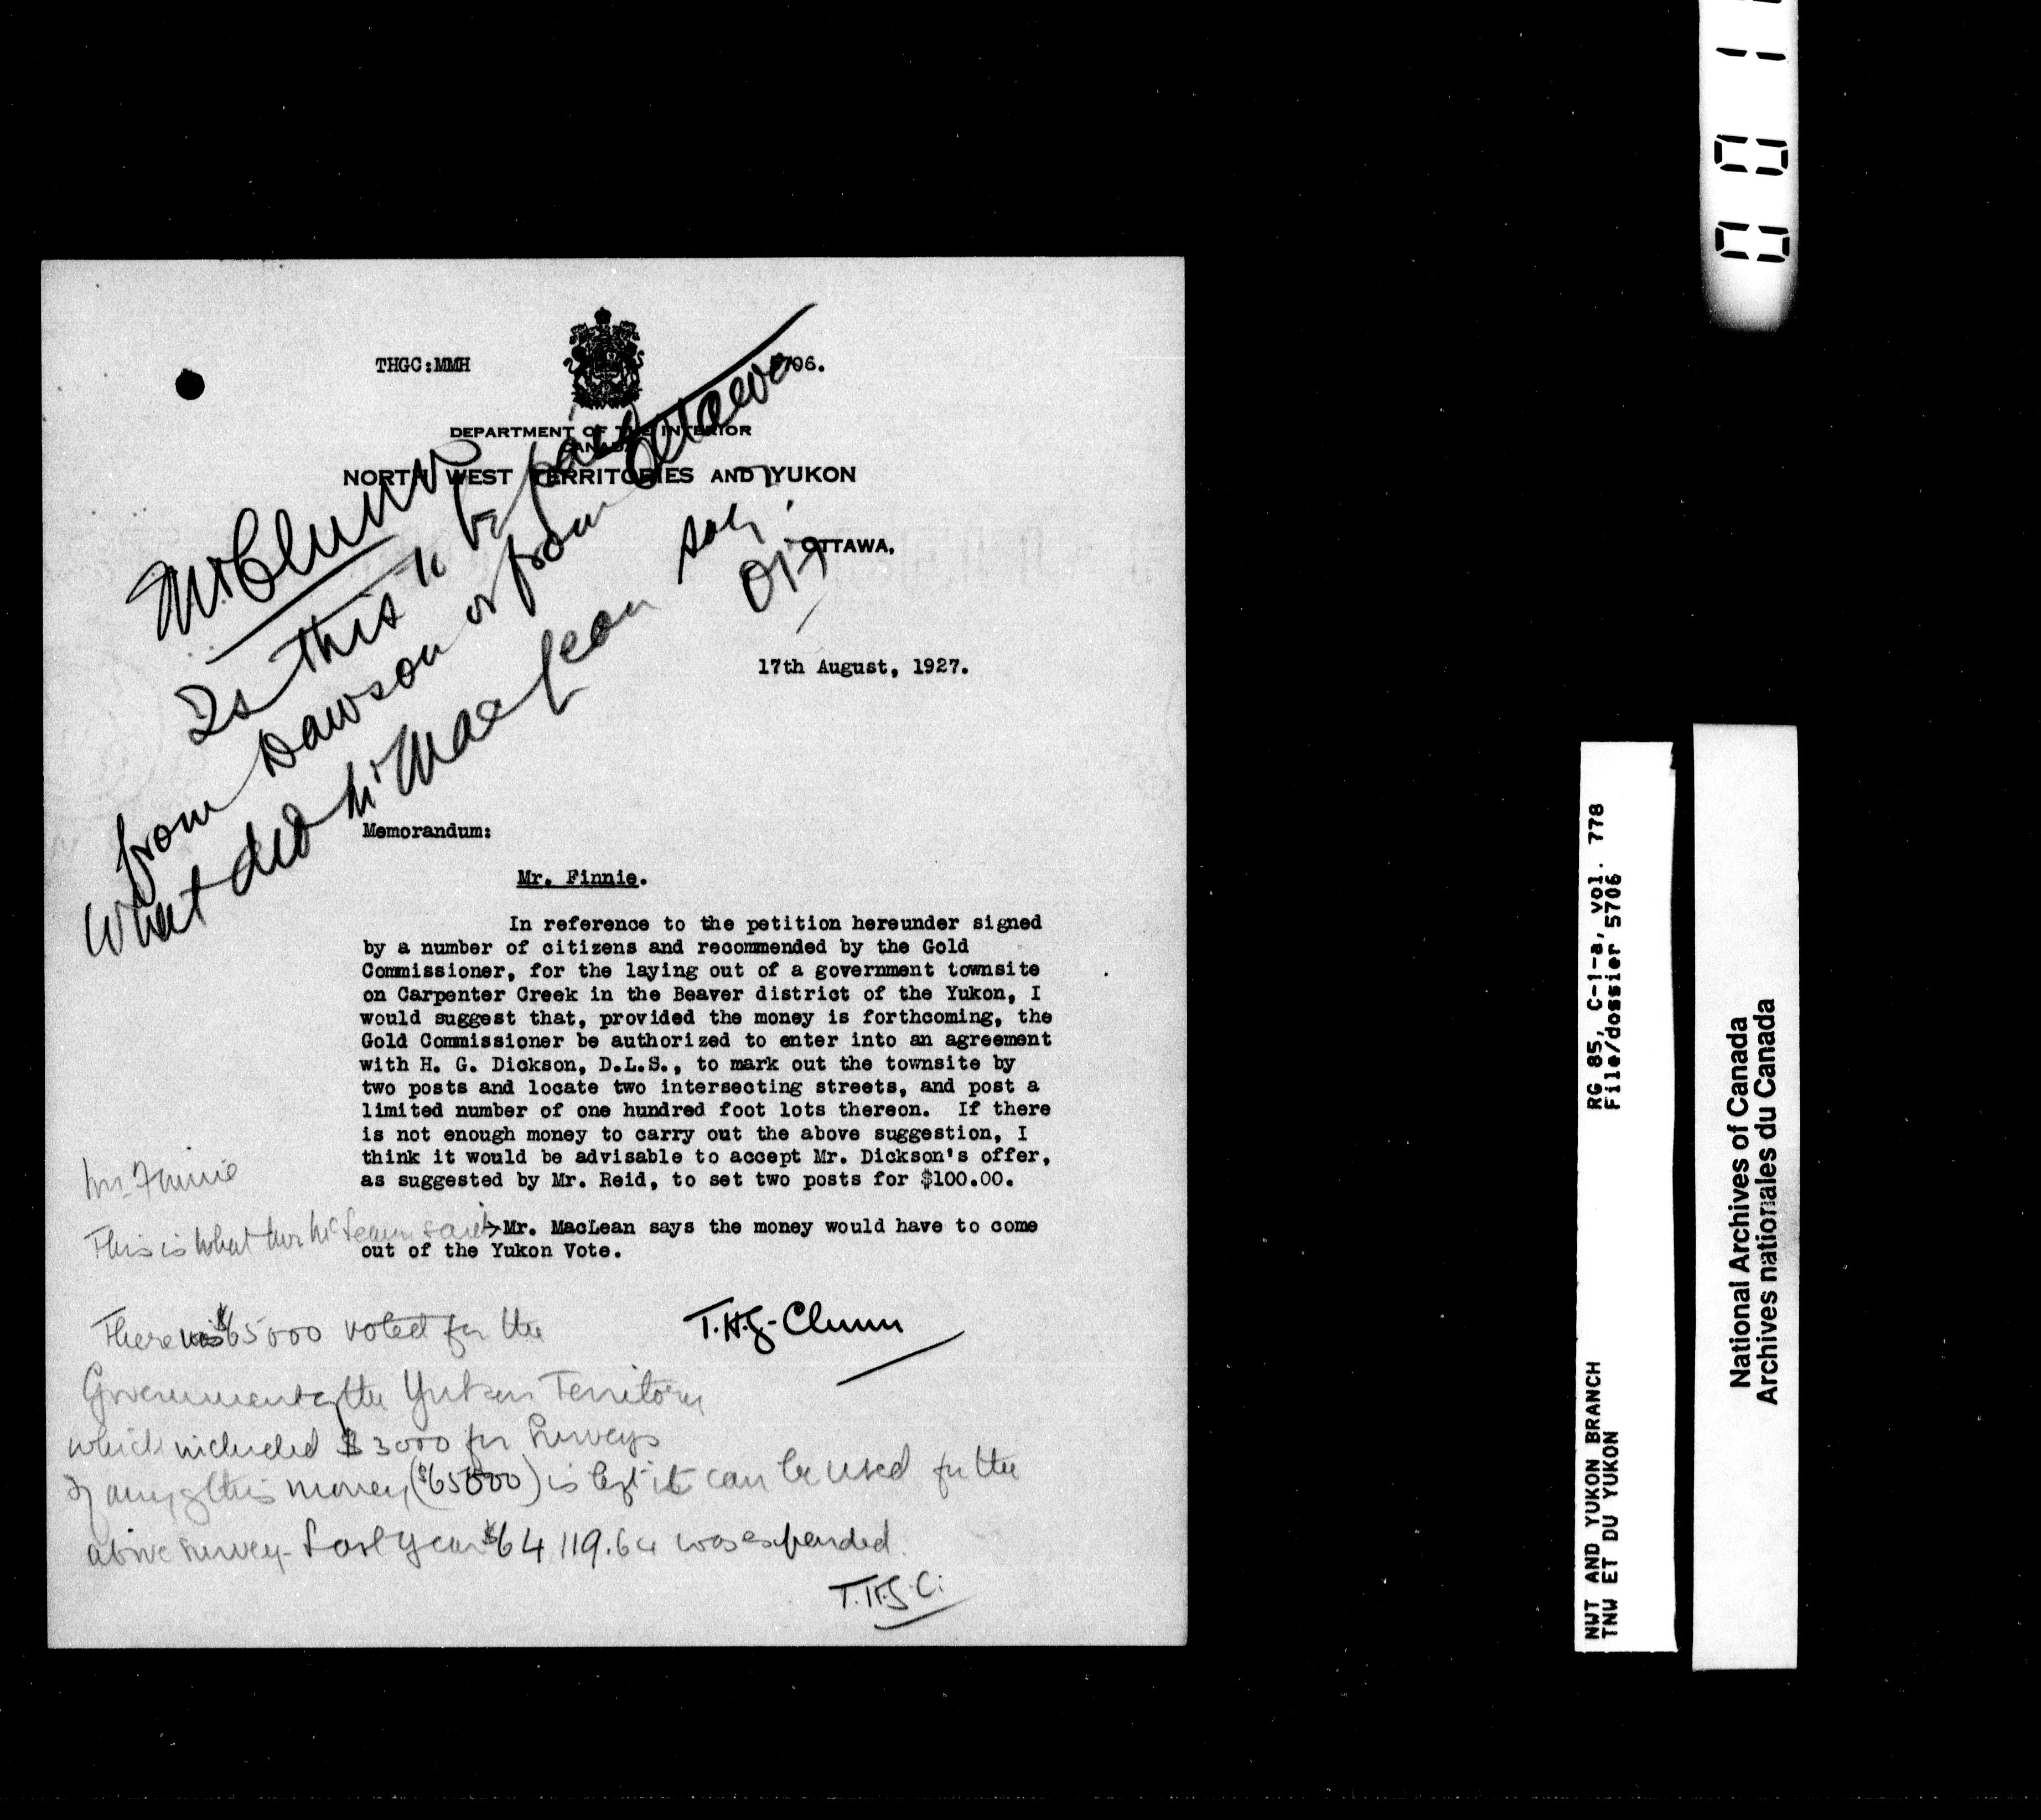 THGC:MMH
5706.
DEPARTMENT OF THE INTERIOR
CANADA
NORTH WEST TERRITORIES AND YUKON
OTTAWA,
17th August, 1927.
Mr Clunn
Is this to be paid
from Dawson or from Ottawa
What did Mr MacLean say?
Memorandum:
Mr. Finnie.
In reference to the petition hereunder signed
by a number of citizens and recommended by the Gold
Commissioner, for the laying out of a government townsite
on Carpenter Creek in the Beaver district of the Yukon, I
would suggest that, provided the money is forthcoming, the
Gold Commissioner be authorized to enter into an agreement
with H. G. Dickson, D.L.S., to mark out the townsite by
two posts and locate two intersecting streets, and post a
limited number of one hundred foot lots thereon. If there
is not enough money to carry out the above suggestion, I
think it would be advisable to accept Mr. Dickson's offer,
as suggested by Mr. Reid, to set two posts for $100.00.
Mr. MacLean says the money would have to come
out of the Yukon Vote.
Mr. Finnie
This is what Mr McLean said
T.H.G. Clunn
There was $65000 voted for the
Government of the Yukon Territory
which included $3000 for Surveys
If any of this money ($65000) is left it can be used for the
above survey - Last year $64119.64 was expended.
T.H.G.C.
RG 85, C-1-a, vol. 778
File/dossier 5706
NWT AND YUKON BRANCH
TNW ET DU YUKON
National Archives of Canada
Archives nationales du Canada